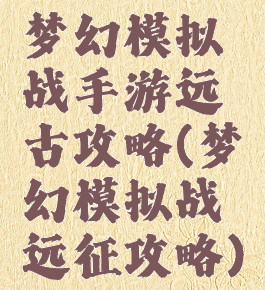 梦幻模拟
战手游远
古攻略(梦
幻模拟战
远征攻略)